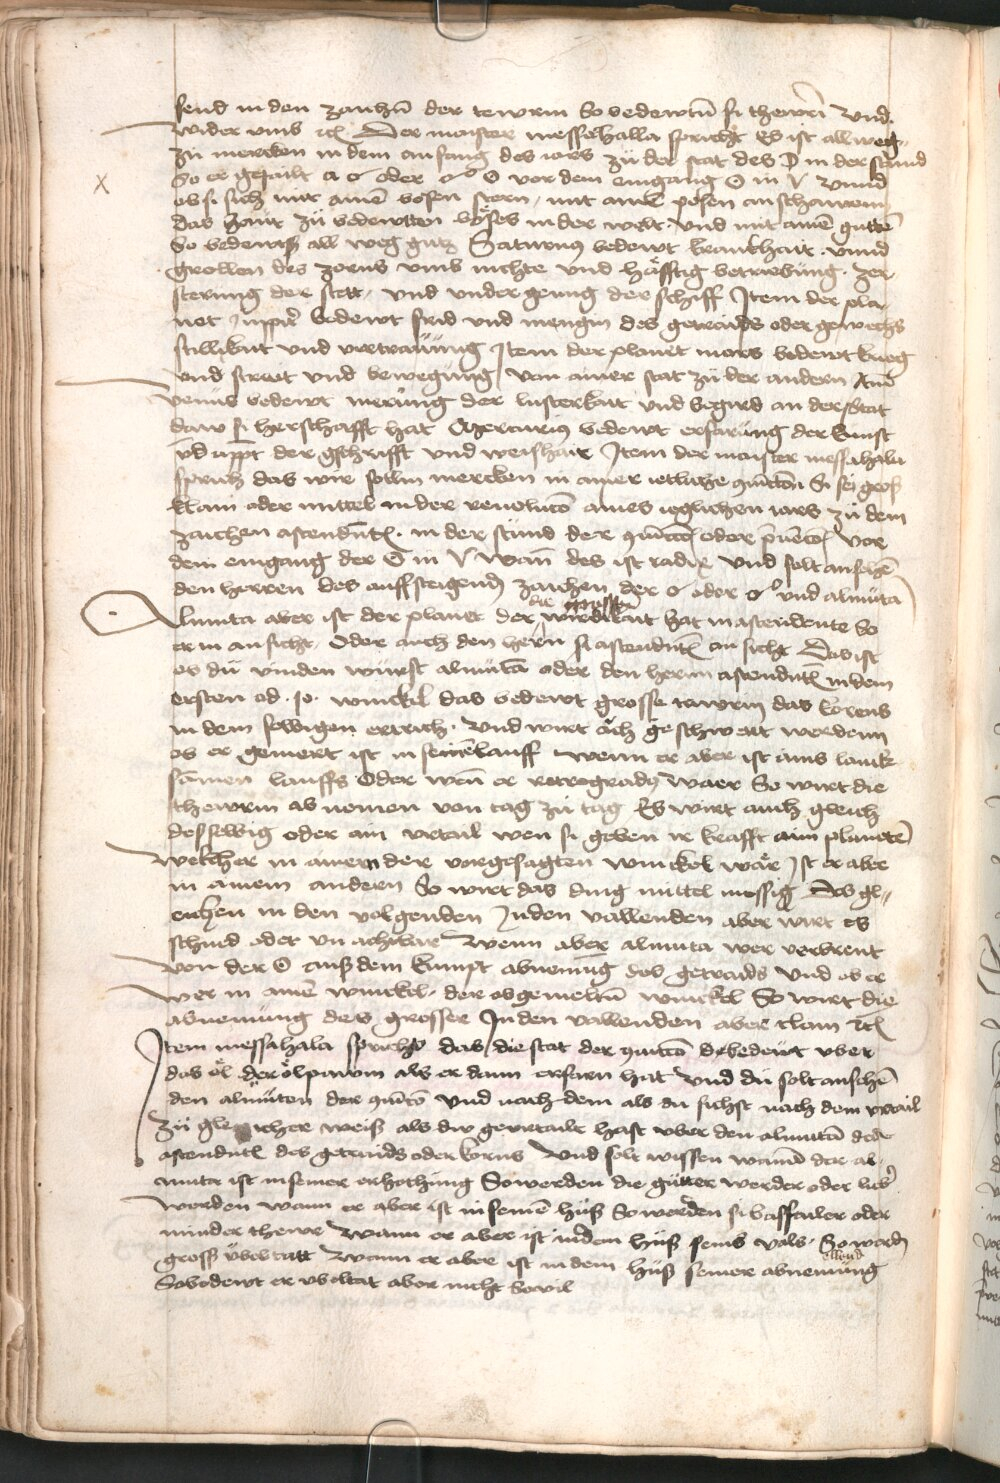 send in den zaichn̄ der tewrin So bedewtn̄ si thewrī Vnd
wider vmb etc̄ Der maister messahalla spricht Es ist allweg
zu mercken in dem anfang des iars zü der stat des ☽ in der stund
So er geselt a ☌ oder ☍ ☉ vor dem eingang ☉ in ♈ Vnnd
ob si sich mit ainē bosen stern, mit ainē posen anschawenn
das haist zü bedewtten böses in der welt. Vnd mit ainē guttē
So bedewts all weg gutz Saturnus bedewt kranckhait. vnnd
grollen des zorns vmb nichte vnd häfftig betriebüng. Zer
sterung der stett, vnd vnder geung der schiff Item der pla
net Jupit̄ bedewt frid vnd mengin des getraids oder gewechs
stillikait vnd vertrawüng Item der planet mars bedewt krieg
vnd streit vnd bewegüng von ainer stat zü der andern Itm̄
Venus bedewt merüng der lusterkait vnd begird an der stat
daw si herschafft hat Mercurius bedewt erfarüng der kunst
vd̄ der gschrifft vnd weishait Item der maister messahala
sprich das wir solln mercken in ainer ietliche 9iūctōn Si sej gros
klain oder mittel in der reuolucō aines ieglichen iars zü dem
zaichen ascendnt̄. in der stund der 9iūctō oder p̄uēcō vor
dem eingang der ☉ in ♈ wañ des ist radix Vnd solt ansehē
den herren des auffsteigendn̄ zaichen der ☌ oder ☍ vnd almüta
Almuta aber ist der planet der die wirdikait hat in ascendente So
er in ansicht, Oder auch den hern̄ si ascendnt̄ ansicht Das ist
ob dü vinden würst almuta oder den herrn ascendnt̄ in dem
ersten od. 10. winckel das bedewt grosse tewrin das korens
in dem selbigen ertrich. Vnd wirt äch geschwert werdenn
ob er gemert ist in seinē lauff wenn er aber ist ains lanck
samen lauffs Oder wēn er retrogradus waer So wirt die
thewrin ab nemen von tag zü tag Es wirt auch gleich
desselbig oder ain vrtail wen si geben ir krafft aim planetē
welcher in ainem der vorgesagten winckel wär Ist er aber
in ainem andern So wirt das ding mittel messig Des gl
eichen in den volgenden In den vallenden aber wirt es
schned oder vn achtbar Wenn aber almuta wer verbrent
von der ☉ auß dem kumpt abnemüng des getraids Vnd ob er
wer in ainē winckel. der obgemeltn̄ winckel So wirt die
abnemüng des grosser In den vallenden aber clain etc̄
Item messahala spricht das die stat der 9iūctō bedewt vber
das öl der ölpawm als er dann erfarn hat Vnd dü solt ansehē
den almüten der 9iūctō Vnd nach dem als du sichst nach dem vrtail
zü gleicher weiß als dw gevrtailt hast vber den almuta des
ascendnt̄ des getraids oder korns Vnd solt wissen wann der al
muta ist in seiner erhochüng So werden die gütter werder oder lieb̄
werden wann er aber ist in seinē hüß So werden si baffailer oder
minder thewr Wann er aber ist in dem hüß seins vals. So werdn̄
gross übeltatt Wann er aber ist in dem hüß seiner abnemüng
So bedewt er vbeltat aber nicht sovil